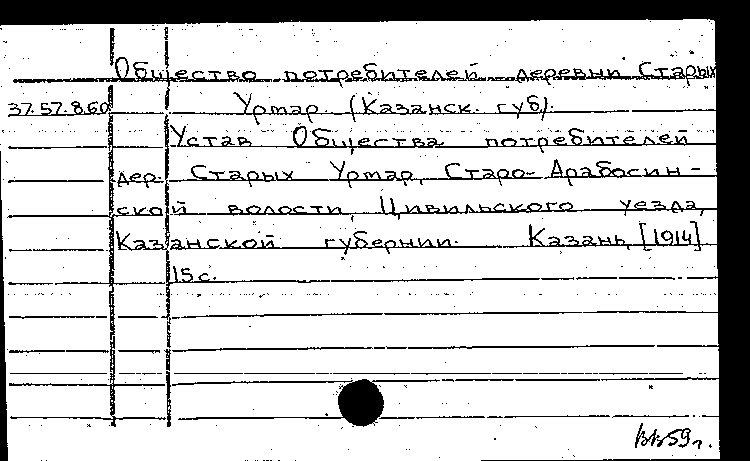 Общество потребителей деревни Старых
37.57.8.60 Урмар. (Казанск. губ).
Устав Общества потребителей
дер. Старых Урмар, Старо-Арабосин-
ской волости, Цивильского уезда,
Казанской губернии. Казань, [1914]
15 с.
59 г.